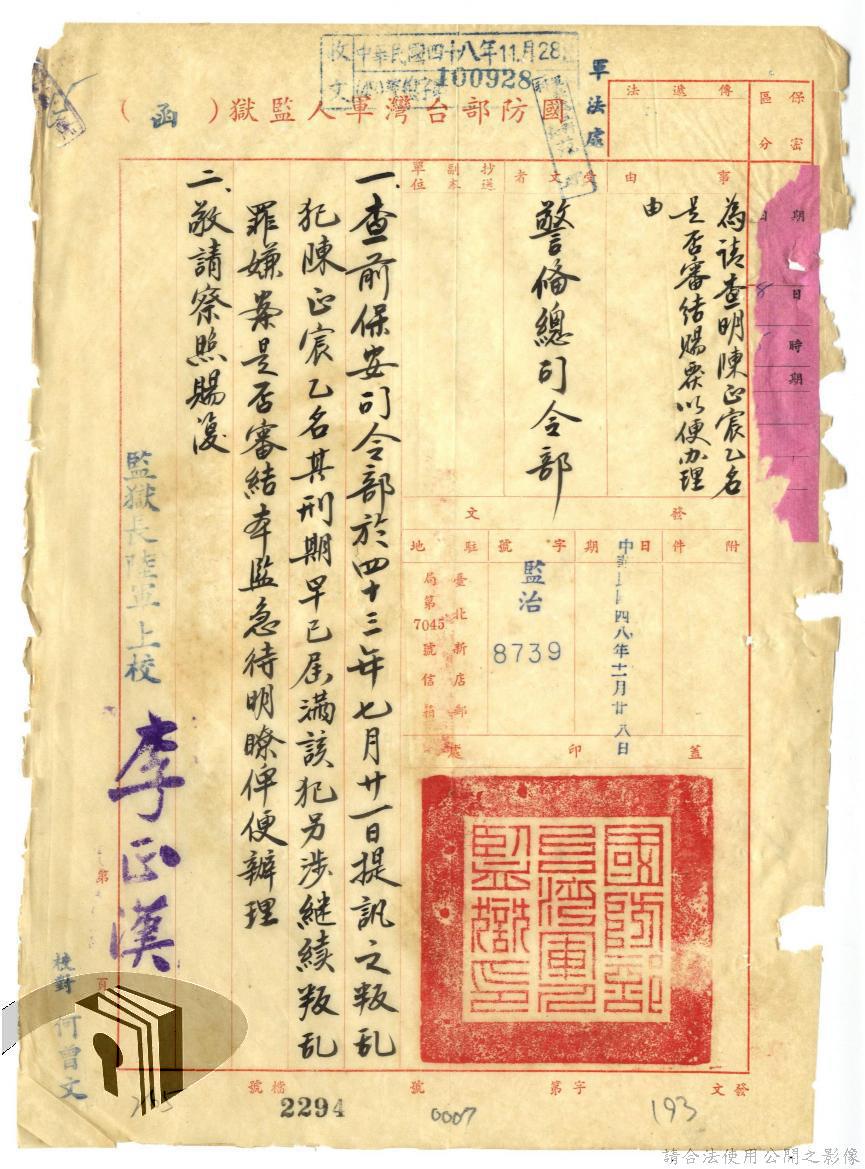 收文
中華民國四十八年11月28
100928
軍法處
國防部台灣軍人監獄（函）
保密區分
傳遞法
事由
為請查明陳正宸乙名
是否審結賜覆以便办理
由
受文者
警備總司令部
抄送副本單位
期
日
時
期
發文
附件
日期
中華民國四八年十一月廿八日
字號
監治
8739
駐地
臺北新店郵
局第7045號信箱
蓋印處
國防部
台灣軍人
監獄印
一、查前保安司令部於四十三年七月廿一日提訊之叛乱
犯陳正宸乙名其刑期早已屆滿該犯另涉継續叛乱
罪嫌案是否審結本監急待明瞭俾便辦理
二、敬請察照賜復
監獄長陸軍上校
李正漢
第
頁
校對 何曾文
發文
字第
號
檔號
2294
0007
193
請合法使用公開之影像